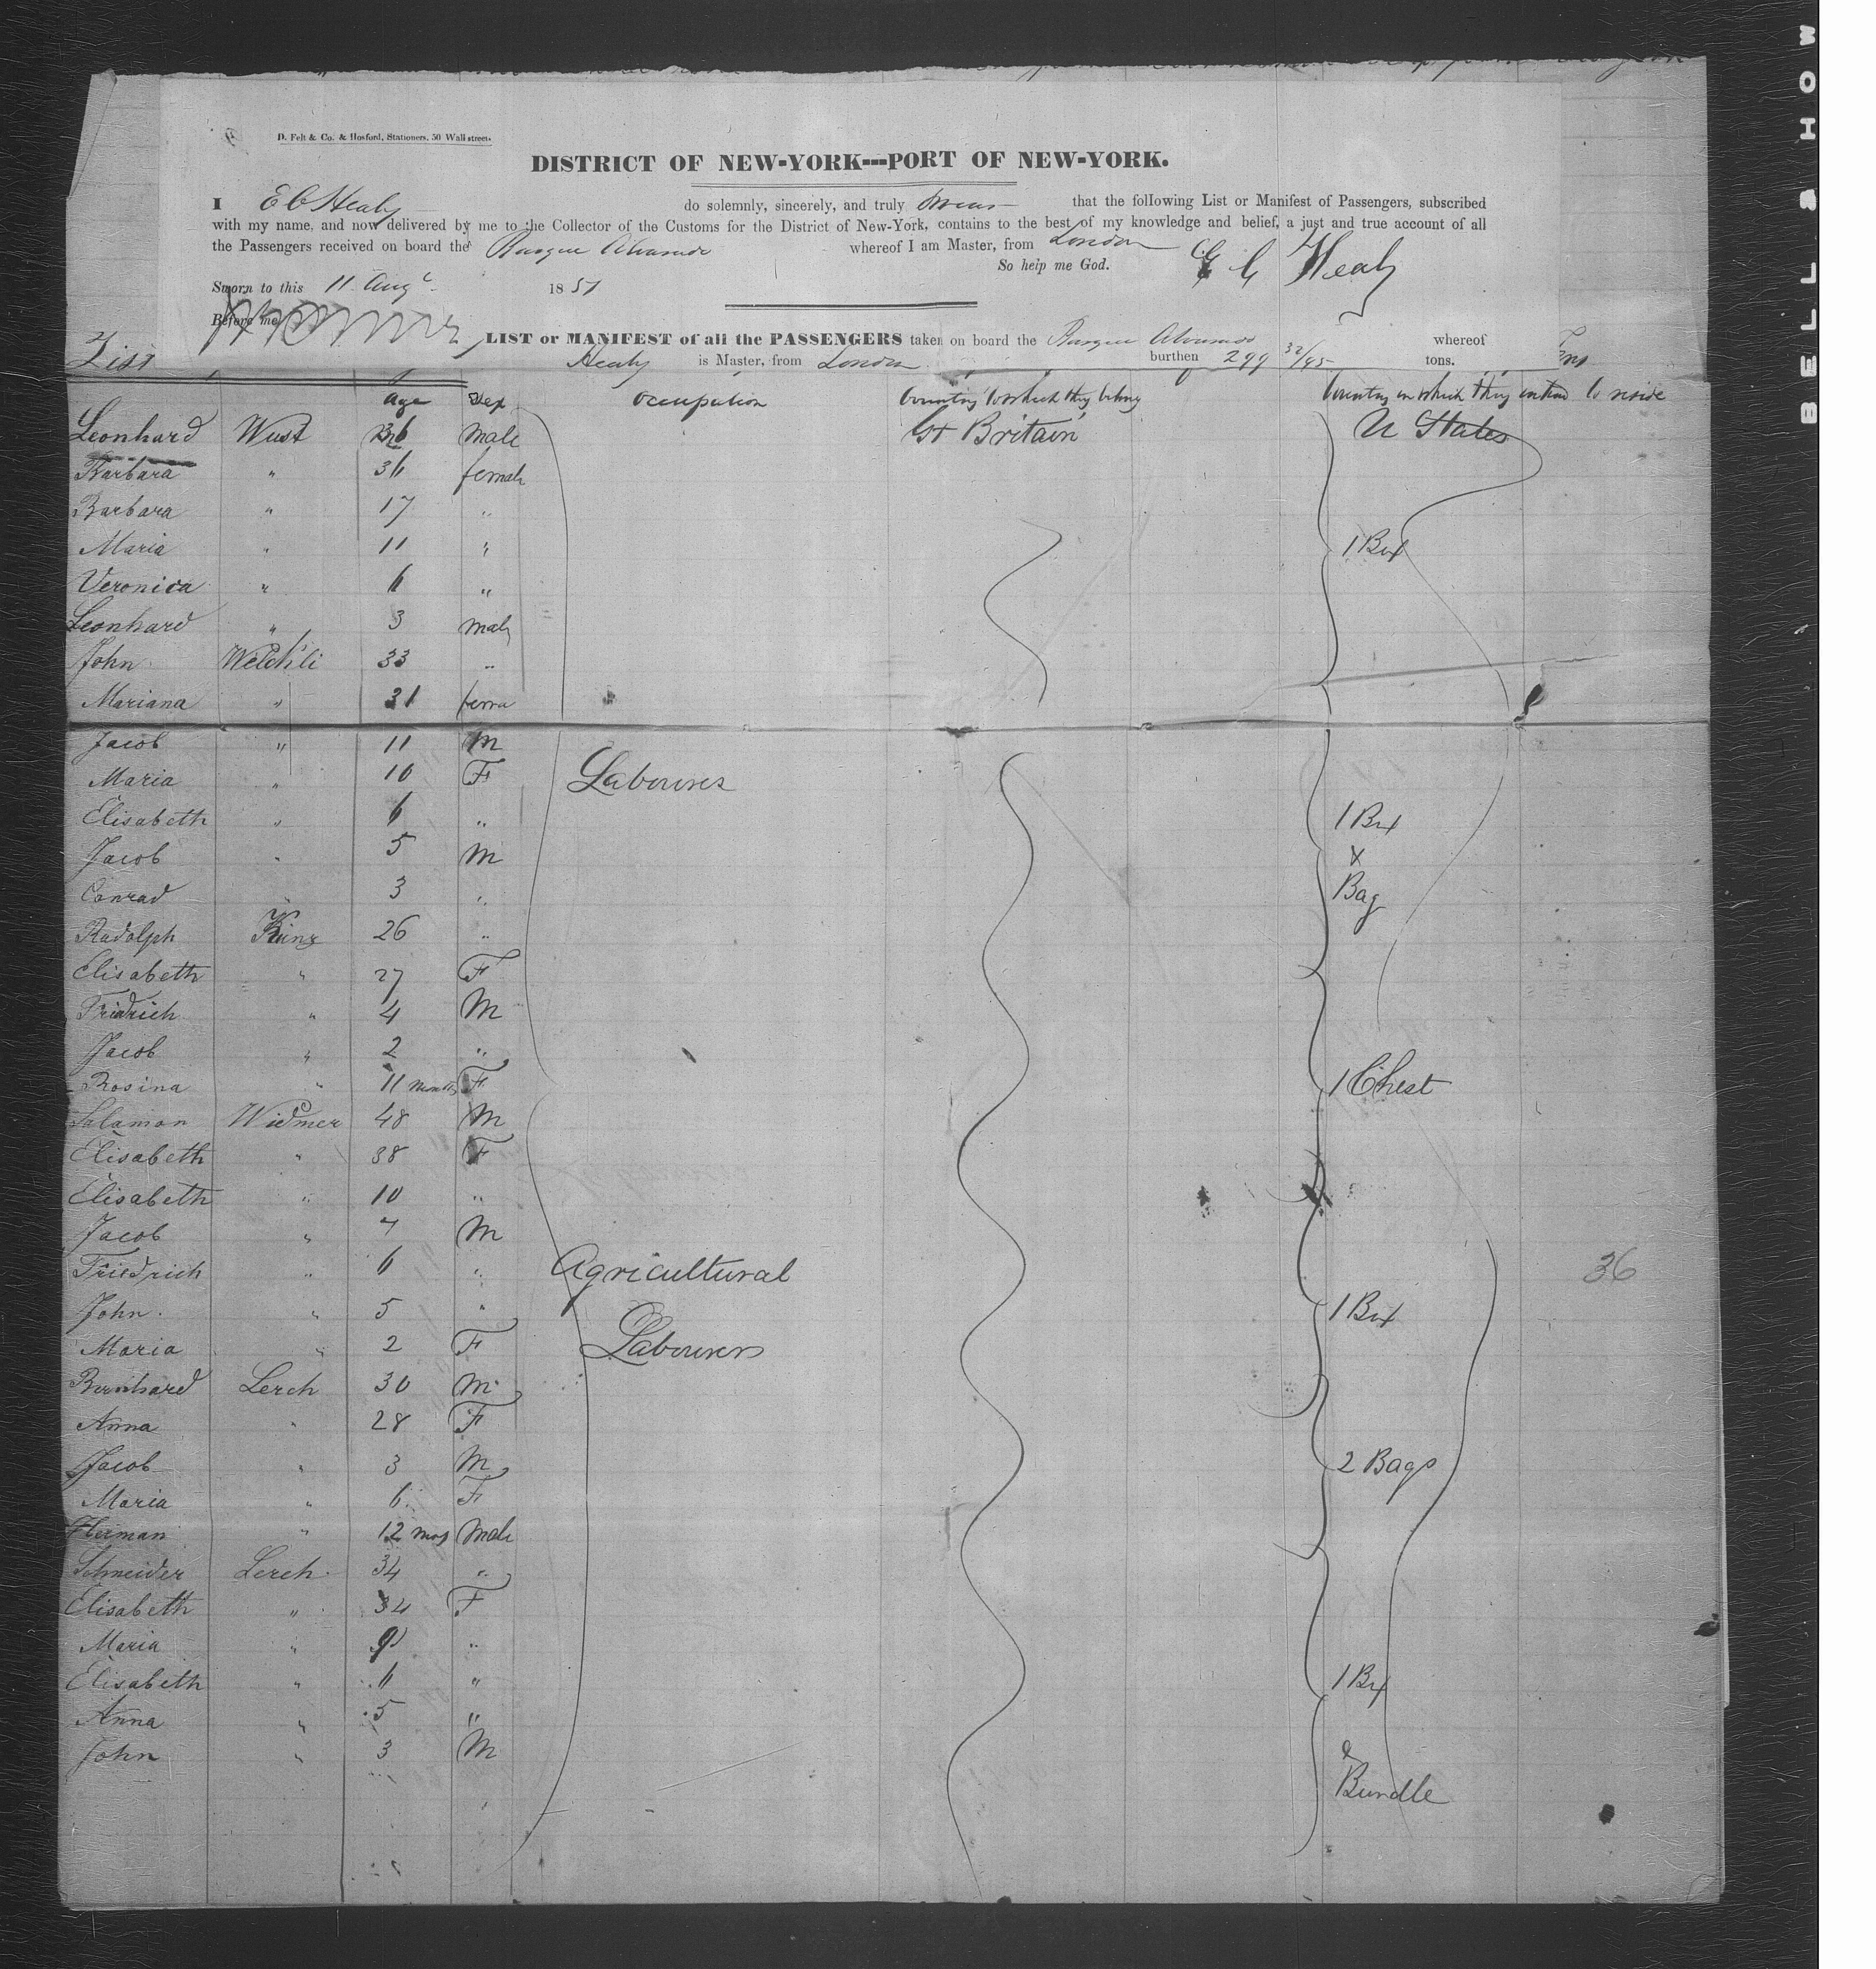 D. Felt & Co. & Hosford, Stationers, 50 Wall street.
DISTRICT OF NEW-YORK---PORT OF NEW-YORK.
I E C Healy do solemnly, sincerely, and truly swear that the following List or Manifest of Passengers, subscribed
with my name, and now delivered by me to the Collector of the Customs for the District of New-York, contains to the best of my knowledge and belief, a just and true account of all
the Passengers received on board the Barque Alvarado whereof I am Master, from London
So help me God. Healy
Sworn to this 11 Augt 1851
Before me
LIST or MANIFEST of all the PASSENGERS taken on board the Barque Alvarado whereof
List Healy is Master, from London burthen 299 32/95 tons. Tons
Age Sex Occupation Country to which they belong Country in which they intend to reside
Leonhard Wust 36 Male Gt Britain U States
Barbara " 36 female
Barbara " 17 "
Maria " 11 " 1 Box
Veronica " 6 "
Leonhard " 3 male
John Welchli 33 "
Mariana " 31 fema
Jacob " 11 M
Maria " 10 F Labourers
Elisabeth " 6 " 1 Box
Jacob " 5 M &
Conrad " 3 " Bag
Rudolph Kunz 26 "
Elisabeth " 27 F
Fridrich " 4 M
Jacob " 2 "
Rosina " 11 months F 1 Chest
Salamon Widmer 48 M
Elisabeth " 38 F
Elisabeth " 10 "
Jacob " 7 M
Friedrich " 6 " Agricultural 36
John " 5 " 1 Box
Maria " 2 F Labourers
Bernhard Lerch 30 M
Anna " 28 F
Jacob " 3 M 2 Bags
Maria " 6 F
Herman " 12 mos Male
Schneider Lerch 34 "
Elisabeth " 34 F
Maria " 9 "
Elisabeth " 6 " 1 Box
Anna " 5 "
John " 3 M &
Bundle
BELL & HOW